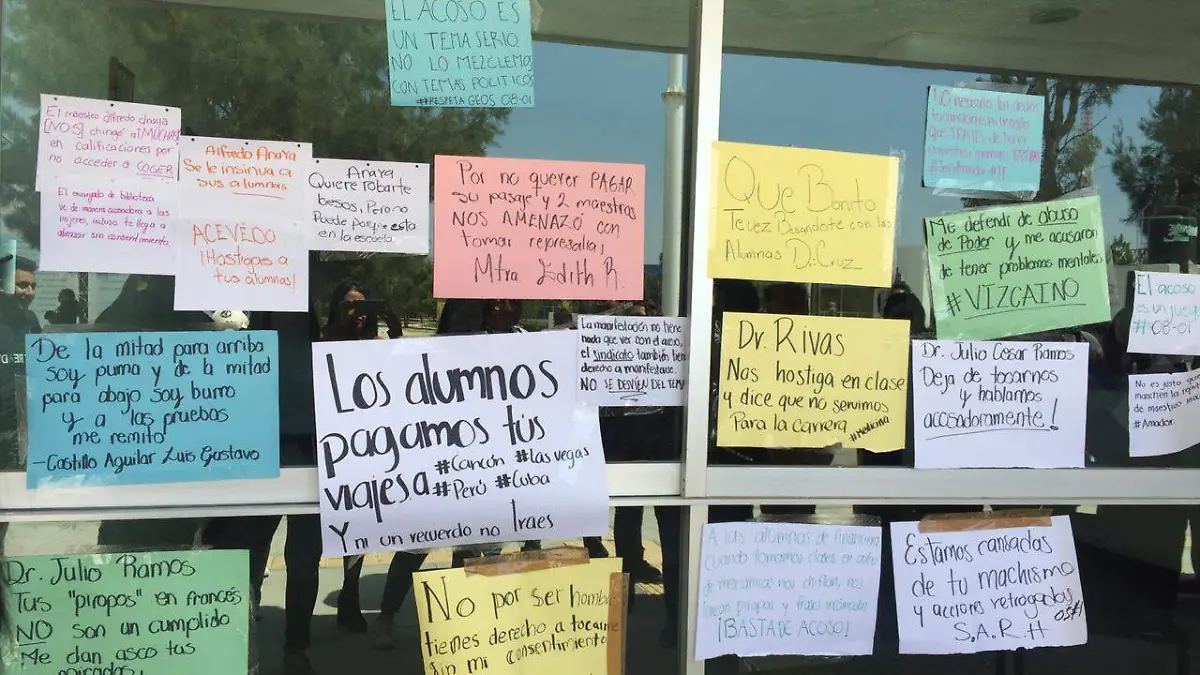 EL ACOSO ES
UN TEMA SERIO.
NO LO MEZCLEMOS
CON TEMAS POLITICOS
#RESPETA GEOS 08-01
El maestro Alfredo Anaya
[NOS] chingó a ¡MUCHAS!
en calificaciones por
no acceder a COGER
El encargado de biblioteca
ve de manera acosadora a las
mujeres, incluso te llega a
abrazar sin consentimiento.
Alfredo Anaya
Se le insinua a
sus alumnas
ACEVEDO
¡Hostigas a
tus alumnas!
Anaya
Quiere robarte
besos, Pero no
Puede porque esta
en la escuela
Por no querer PAGAR
su pasaje y 2 maestras
NOS AMENAZÓ con
tomar represalia¡
Mtra Edith R.
Que Bonito
Te vez Besandote con las
Alumnas Dr. Cruz
NO necesito
que TRATES de tener
Me defendi de abuso
de Poder y me acusaron
de tener problemas mentales
#VIZCAINO
El acoso
es un
#08-01
De la mitad para arriba
soy puma y de la mitad
para abajo soy burro
y a las pruebas
me remito
-Castillo Aguilar Luis Gustavo
Los alumnos
pagamos tús
viajes a #Cancún #Las vegas
#Perú #Cuba
Y ni un recuerdo no traes
La manifestación no tiene
nada que ver con el acoso,
el sindicato también tiene
derecho a manifestarse.
NO SE DESVIEN DEL TEMA
Dr. Rivas
Nos hostiga en clase
y dice que no servimos
Para la carrera #Medicina
Dr. Julio Cesar Ramos
Deja de tocarnos
y hablarnos
acosadoramente!
No es justo
de maestro
#Amador
Dr. Julio Ramos
Tus "piropos" en francés
NO son un cumplido
Me dan asco tus
miradas!
No por ser hombre
tienes derecho a tocarme
Sin mi consentimiento
A las alumnas de
cuando tomamos clases en
de mecanica nos chiflan, nos
lanzan piropos y frases incómodas
¡BASTA DE ACOSO!
Estamos cansadas
de tu machismo
y acciones retrogadas
S.A.R.H